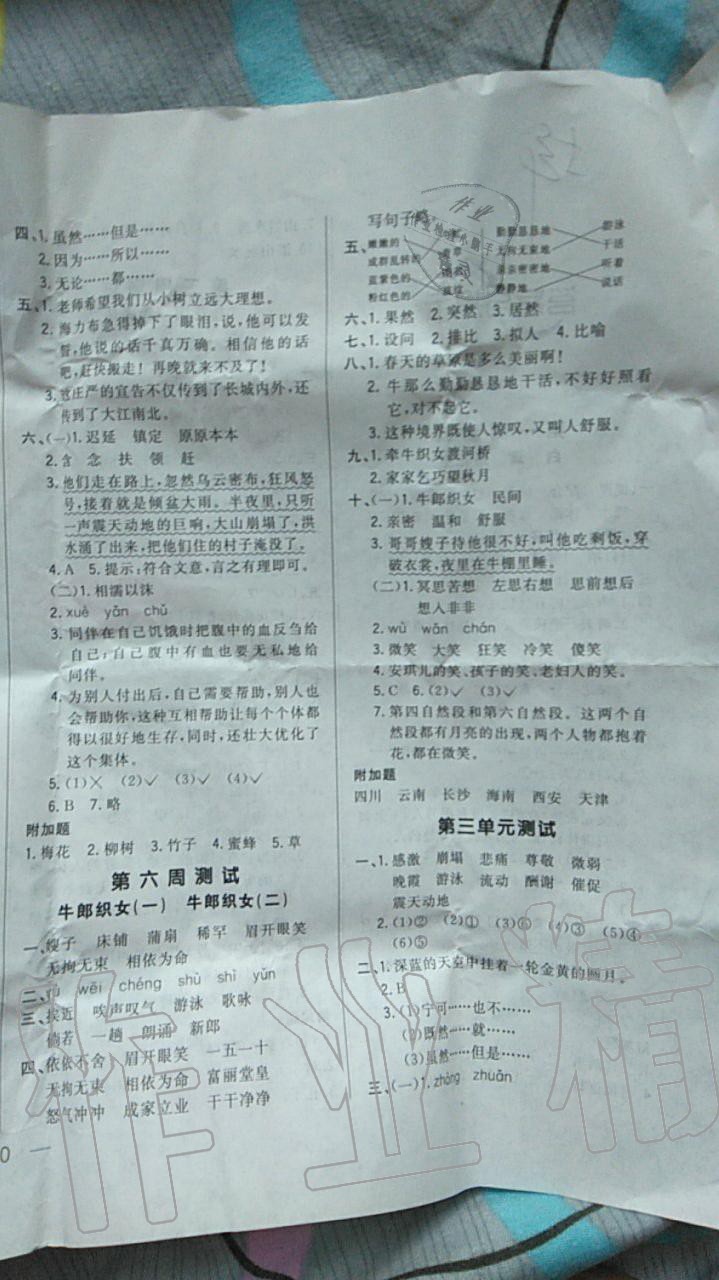 四、1. 虽然……但是……
2. 因为……所以……
3. 无论……都……
五、1. 老师希望我们从小树立远大理想。
2. 海力布急得掉下了眼泪，说，他可以发
誓，他说的话千真万确。相信他的话
吧，赶快搬走！再晚就来不及了！
3. 庄严的宣告不仅传到了长城内外，还
传到了大江南北。
六、(一)1. 迟延 镇定 原原本本
2. 含 念 扶 领 赶
3. 他们走在路上，忽然乌云密布，狂风怒
号，接着就是倾盆大雨。半夜里，只听
一声震天动地的巨响，大山崩塌了，洪
水涌了出来，把他们住的村子淹没了。
4. A 5. 提示：符合文意，言之有理即可。
(二)1. 相濡以沫
2. xuè yān chǔ
3. 同伴在自己饥饿时把腹中的血反刍给
自己；自己腹中有血也要无私地给
同伴。
4. 为别人付出后，自己需要帮助，别人也
会帮助你，这种互相帮助让每个个体都
得以很好地生存，同时，还壮大优化了
这个集体。
5. (1)✕ (2)✓ (3)✓ (4)✓
6. B 7. 略
附加题
1. 梅花 2. 柳树 3. 竹子 4. 蜜蜂 5. 草
第六周测试
牛郎织女(一) 牛郎织女(二)
一、嫂子 床铺 蒲扇 稀罕 眉开眼笑
无拘无束 相依为命
二、 wēi chéng shù shì yǔn
三、挨近 唉声叹气 游泳 歌咏
倘若 一趟 朗诵 新郎
四、依依不舍 眉开眼笑 一五一十
无拘无束 相依为命 富丽堂皇
怒气冲冲 成家立业 干干净净
写句子略
五、嫩嫩的 勤勤恳恳地 游泳
成群乱转的 无拘无束地 干活
蓝紫色的 亲亲密密地 听着
粉红色的 静静地 说话
六、1. 果然 2. 突然 3. 居然
七、1. 设问 2. 排比 3. 拟人 4. 比喻
八、1. 春天的草原是多么美丽啊！
2. 牛那么勤勤恳恳地干活，不好好照看
它，对不起它。
3. 这种境界既使人惊叹，又叫人舒服。
九、1. 牵牛织女渡河桥
2. 家家乞巧望秋月
十、(一)1. 牛郎织女 民间
2. 亲密 温和 舒服
3. 哥哥嫂子待他很不好，叫他吃剩饭，穿
破衣裳，夜里在牛棚里睡。
(二)1. 冥思苦想 左思右想 思前想后
想入非非
2. wù wān chán
3. 微笑 大笑 狂笑 冷笑 傻笑
4. 安琪儿的笑、孩子的笑、老妇人的笑。
5. C 6. (2)✓ (3)✓
7. 第四自然段和第六自然段。这两个自
然段都有月亮的出现，两个人物都抱着
花，都在微笑。
附加题
四川 云南 长沙 海南 西安 天津
第三单元测试
一、1. 感激 崩塌 悲痛 尊敬 微弱
晚霞 游泳 流动 酬谢 催促
震天动地
2. (1)② (2)① (3)⑥ (4)③ (5)④
(6)⑤
二、1. 深蓝的天空中挂着一轮金黄的圆月。
2. B
3. (1)宁可……也不……
(2)既然……就……
(3)虽然……但是……
三、(一)1. zhòng zhuǎn
作业精